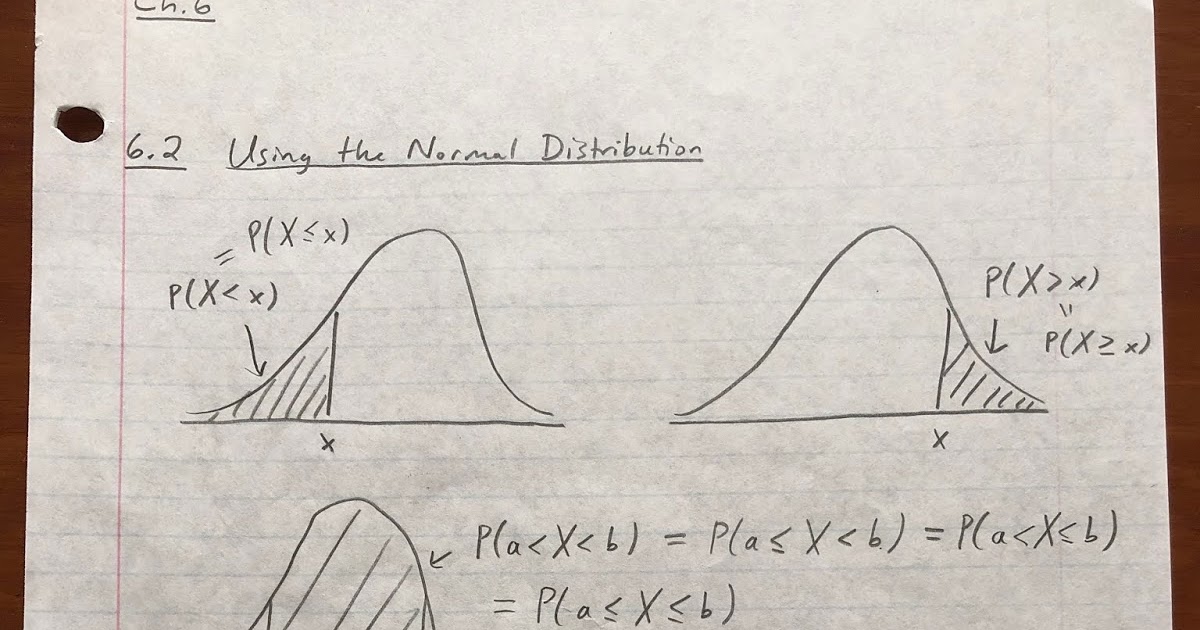 Ch.6
6.2 Using the Normal Distribution
P(X≤x)
=
P(X<x)
x
P(X>x)
=
P(X≥x)
x
P(a<X<b) = P(a≤X<b) = P(a<X≤b)
= P(a≤X≤b)